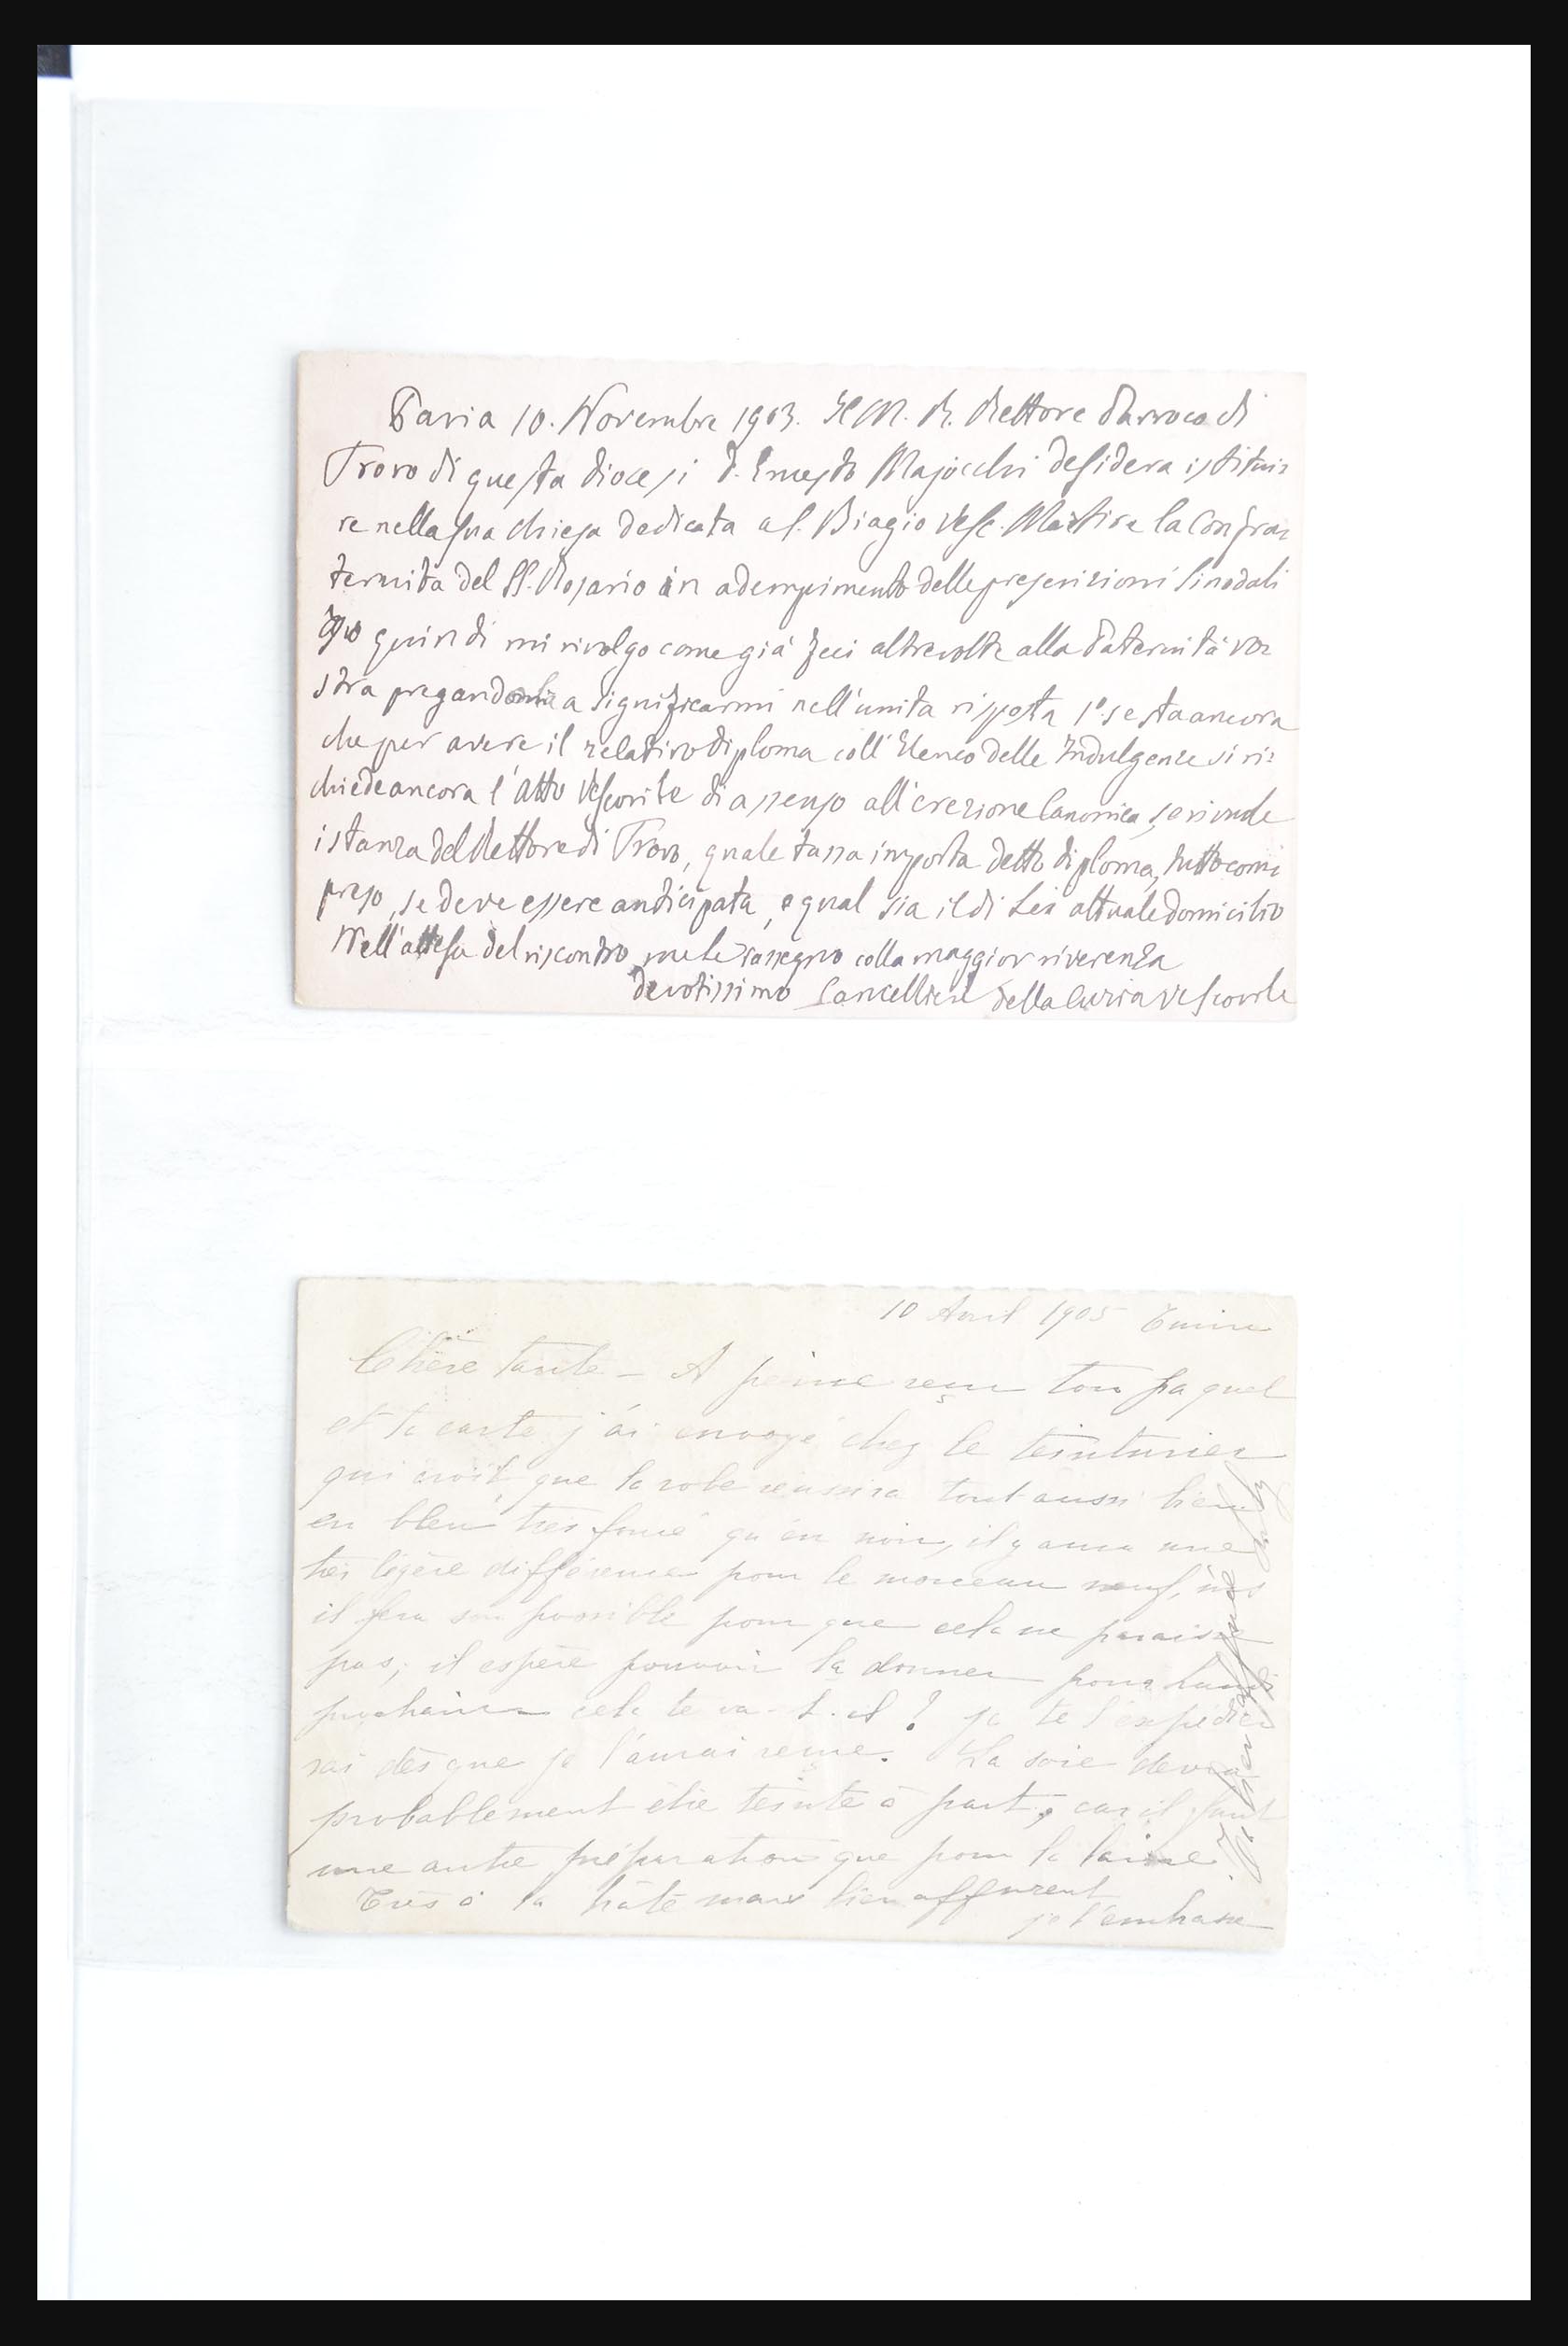 Pavia 10. Novembre 1903. Il M. R. Rettore Parroco di
Trovo di questa diocesi D. Ernesto Majocchi desidera istitui=
re nella sua chiesa dedicata a S. Biagio Vesc. Martire la Confra=
ternita del SS. Rosario in adempimento delle prescrizioni Sinodali
Io quindi mi rivolgo come già feci altre volte alla Paternità vo=
stra pregandola a significarmi nell'unita risposta 1º. se sta ancora
che per avere il relativo diploma coll'Elenco delle Indulgenze si ri=
chiede ancora l'atto Vescovile di assenso all'erezione Canonica, se vi vuole
istanza del Rettore di Trovo, quale tassa importa detto diploma, tutto com=
preso, se deve essere anticipata, e qual sia il di Lei attuale domicilio
Nell'attesa del riscontro me le rassegno colla maggior riverenza
devotissimo Cancelliere della Curia Vescovile
10 Avril 1905 Turin
Chère tante – A peine reçu ton paquet
et ta carte j'ai envoyé chez le teinturier
qui croit que la robe réussira tout aussi bien
en bleu très foncé qu'en noir, il y aura une
très légère différence pour le morceau neuf, mais
il fera son possible pour que cela ne paraisse
pas; il espère pouvoir la donner pour lundi
prochain cela te va-t-il? je te l'expédie
rai dès que je l'aurai reçue. La soie devra
probablement être teinte à part, car il faut
une autre préparation que pour la laine
Très à la hâte mais bien
je t'embrasse